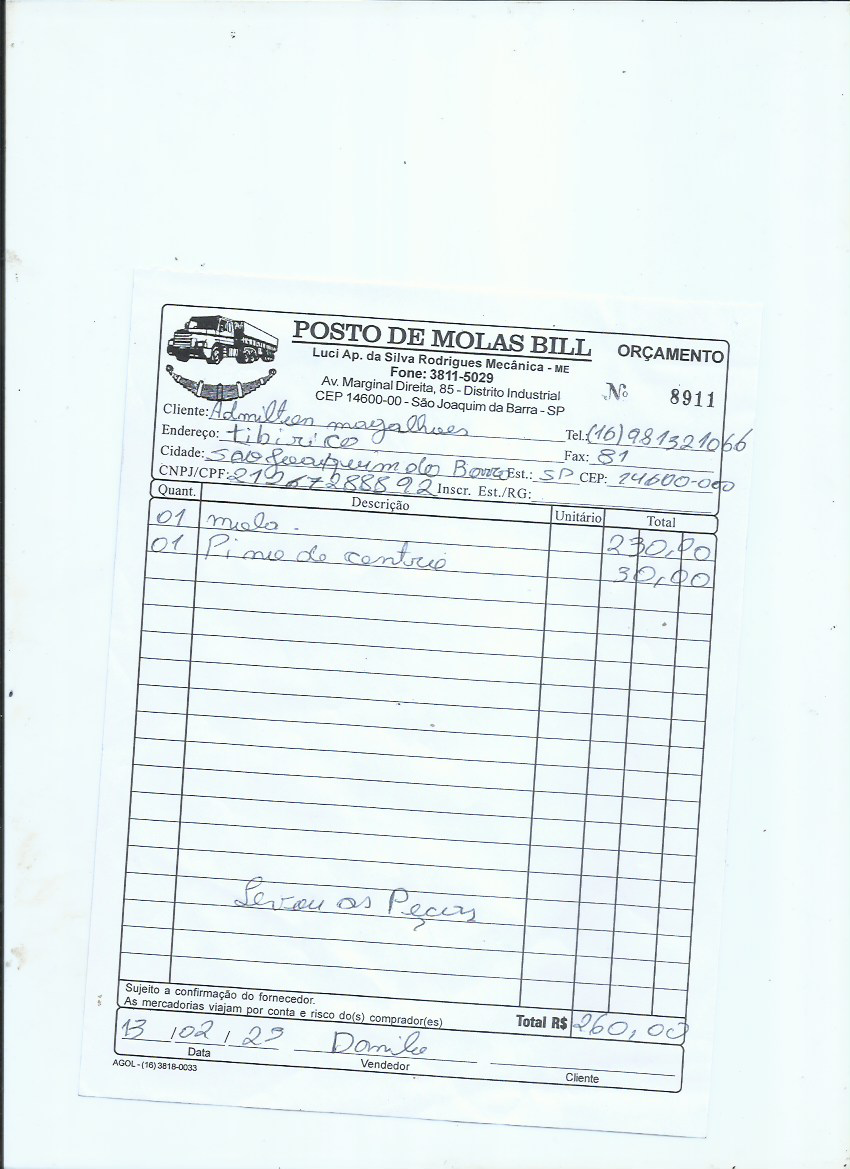 POSTO DE MOLAS BILL
ORÇAMENTO
Luci Ap. da Silva Rodrigues Mecânica - ME
Fone: 3811-5029
Av. Marginal Direita, 85 - Distrito Industrial
CEP 14600-00 - São Joaquim da Barra - SP
Nº 8911
Cliente: Admilton magalhoes
Tel.: (16) 981321066
Endereço: tibirico
Fax: 81
Cidade: São Joaquim da Barra Est.: SP CEP: 14600-000
CNPJ/CPF: Inscr. Est./RG:
Quant. Descrição Unitário Total
01 mola. 230,00
01 Pino de centro 30,00
Levou as Peças
Sujeito a confirmação do fornecedor.
As mercadorias viajam por conta e risco do(s) comprador(es)
Total R$ 260,00
13 / 02 /
Data
Vendedor
Cliente
AGOL - (16) 3818-0033